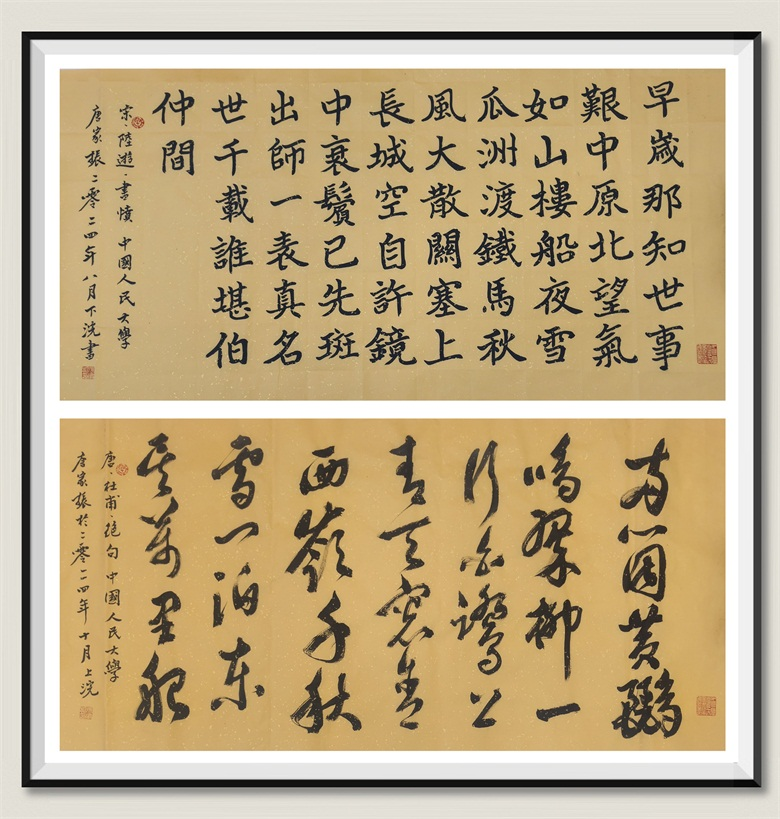 早歲那知世事
艱中原北望氣
如山樓船夜雪
瓜洲渡鐵馬秋
風大散關塞上
長城空自許鏡
中衰鬢已先斑
出師一表真名
世千載誰堪伯
仲間
宋·陸遊·書憤 中國人民大學
唐家振二零二四年八月下浣書
両箇黃鸝
鳴翠柳一
行白鷺上
青天窓含
西嶺千秋
雪門泊東
吳萬里船
唐·杜甫·絕句 中國人民大學
唐家振於二零二四年十月上浣